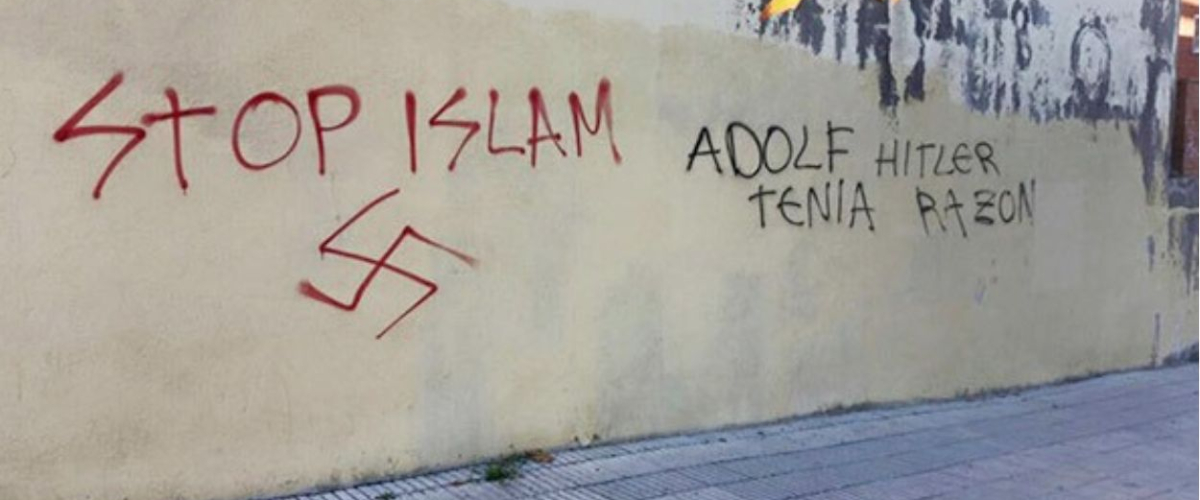 STOP ISLAM
ADOLF HITLER
TENIA RAZON